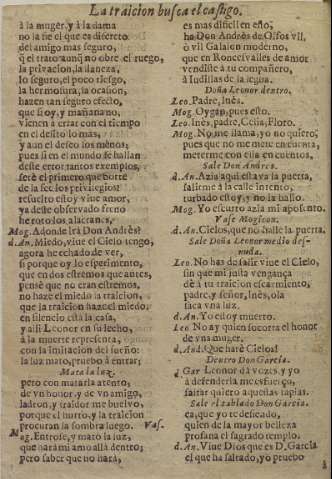 La traicion busca el castigo.
à la muger, y à la dama
no la fie el que es discreto
del amigo mas seguro,
q̃ el trato aunq̃ no obre el ruego,
la privacion, la llaneza,
lo seguro, el poco riesgo,
la hermosura, la ocasion,
hazen tan seguro efecto,
que si oy, y mañana no,
vienen à errar con el tiempo
en el desito lo mas,
y aun el deseo los menos;
pues si en el mundo se hallan
deste error tantos exemplos,
serè el primero que borre
de la fee los privilegios:
resuelto estoy vive amor,
ya deste observado freno
he roto los alacranes,
Mog. Adonde irà Don Andrès?
d. An. Miedo, vive el Cielo tengo,
agora he echado de ver,
si porque oy lo esperimento,
que en dos estremos que antes,
pensè que no eran estremos,
no haze el miedo la traicion,
que la traicion haze el miedo:
en silencio està la casa,
y assi Leonor en su lecho,
à la muerte representa,
con la imitacion del sueño:
la luz mato, pruebo à entrar;
Mata la luz.
pero con matarla atento,
de vn honor, y de vn amigo,
ladron, y traidor me buelvo,
porque el hurto, y la traicion
procuran la sombra luego. Vas.
Mog. Entrose, y matò la luz,
que harà mi amo allà dentro;
pero saber que no harà,
es mas dificil en esto,
ha Don Andrès de Olfos vil,
ò vil Galalon moderno,
que en Roncesvalles de amor
vendiste à tu compañero,
à Iudillas de la legua.
Doña Leonor dentro.
Leo. Padre, Inès.
Mog. Oygan, pues esto.
Leo. Inès, padre, Celia, Floro.
Mog. No me llama, yo no quiero,
pues que no me mete en cuenta,
meterme con ella en cuentos,
Sale Don Andres.
d. An. Azia aqui estava la puerta,
salirme à la calle intento,
turbado estoy, y no la hallo.
Mog. Yo escurro àzia mi aposento.
Vase Mogicon.
d. An. Cielos, que no halle la puerta.
Sale Doña Leonor medio desnuda.
Leo. No has de salir vive el Cielo,
sin que mi justa vengança
dè à tu traicion escarmiento,
padre, y señor, Inès, ola
saca vna luz.
d. An. Yo estoy muerto.
Leo. No ay quien socorra el honor
de vna muger.
d. And. Que harè Cielos!
Dentro Don Garcia.
d. Gar. Leonor dà vozes, y yo
à defenderla me esfuerço,
saltar quiero aquestas tapias.
Sale el tablado Don Garcia.
ea, que yo te desiendo,
quien de la mayor belleza
profana el sagrado templo.
d. An. Vive Dios que es D. Garcia
el que ha saltado, yo pruebo